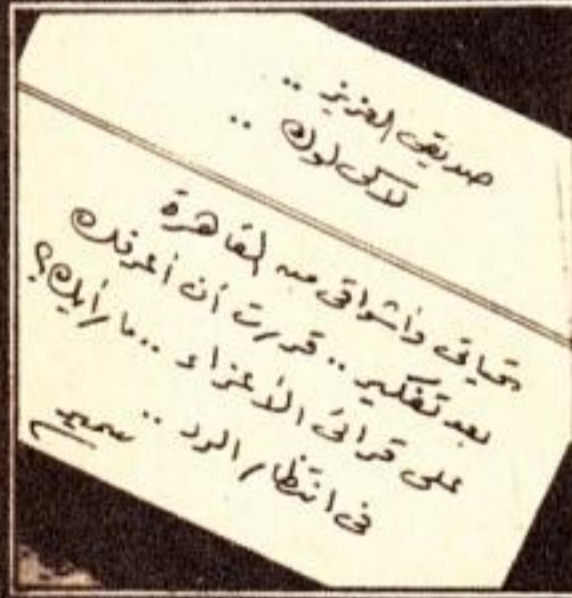 صديقى العزيز ..
لاكى لوك ..
تحياتى وأشواقى من القاهرة
بعد تفكير .. قررت أن أعرفك
على قرائى الأعزاء .. ما رأيك؟
فى انتظار الرد ..
سمير